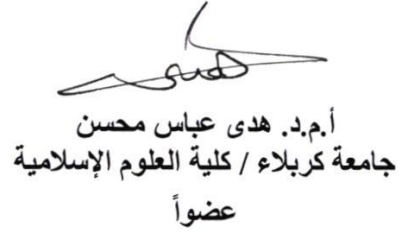 أ.م.د. هدى عباس محسن
جامعة كربلاء / كلية العلوم الإسلامية
عضواً